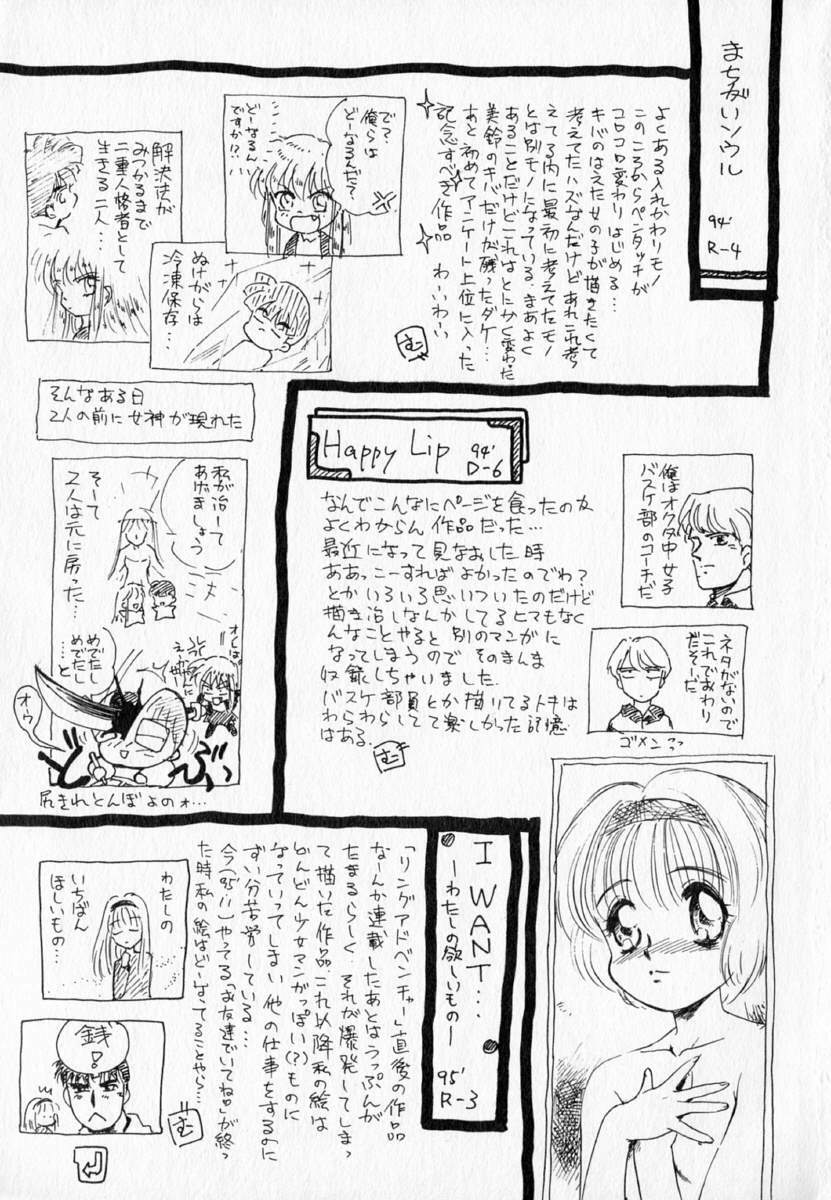 まちがいソウル
94' R-4
よくある入れかわりモノ
このころからペンタッチが
コロコロ変わりはじめる…
キバのはえた女の子が描きたくて
考えてたハズなんだけどあれこれ考
えてる内に最初に考えてたモノ
とは別モノになっている。まあよく
あることだけどこれはとにかく変わった
美鈴のキバだけが残ったダケ…
あと初めてアンケート上位に入った
記念すべき作品 わーいわーい
む
で?
俺らは
どーなるんだ?
どーなるん
ですか!?
ぬけがらは
冷凍保存…
解決法が
みつかるまで
二重人格者として
生きる二人…
そんなある日
2人の前に女神が現れた
私が治して
あげましょう
そーて
2人は元に戻った…
めでたし
めでたし
…と
オウ
尻きれとんぼよのォ…
Happy Lip
94' D-6
なんでこんなにページを食ったのか
よくわからん作品だった…
最近になって見なおした時
ああっこーすればよかったのでわ?
とかいろいろ思いついたのだけど
描き治しなんかしてるヒマもなく
んなことやると別のマンガに
なってしまうのでそのまんま
収録しちゃいました.
バスケ部員とか描いてるトキは
わらわらしてて楽しかった記憶
はある.
む
俺はオクダ中女子
バスケ部のコーチだ
ネタがないので
これでおわり
だそーだ
ゴメンネっ
I WANT…
―わたしの欲しいもの―
95' R-3
「リングアドベンチャー」直後の作品
なーんか連載したあとはうっぷんが
たまるらしく、それが爆発してしまっ
て描いた作品. これ以降私の絵は
どんどん少女マンガっぽい(?)ものに
なっていってしまい他の仕事をするのに
ずい分苦労している…
今(95'11)やってる「お友達でいてね」が終っ
た時私の絵はどーなってることやら…
む
わたしの
いちばん
ほしいもの…
銭!